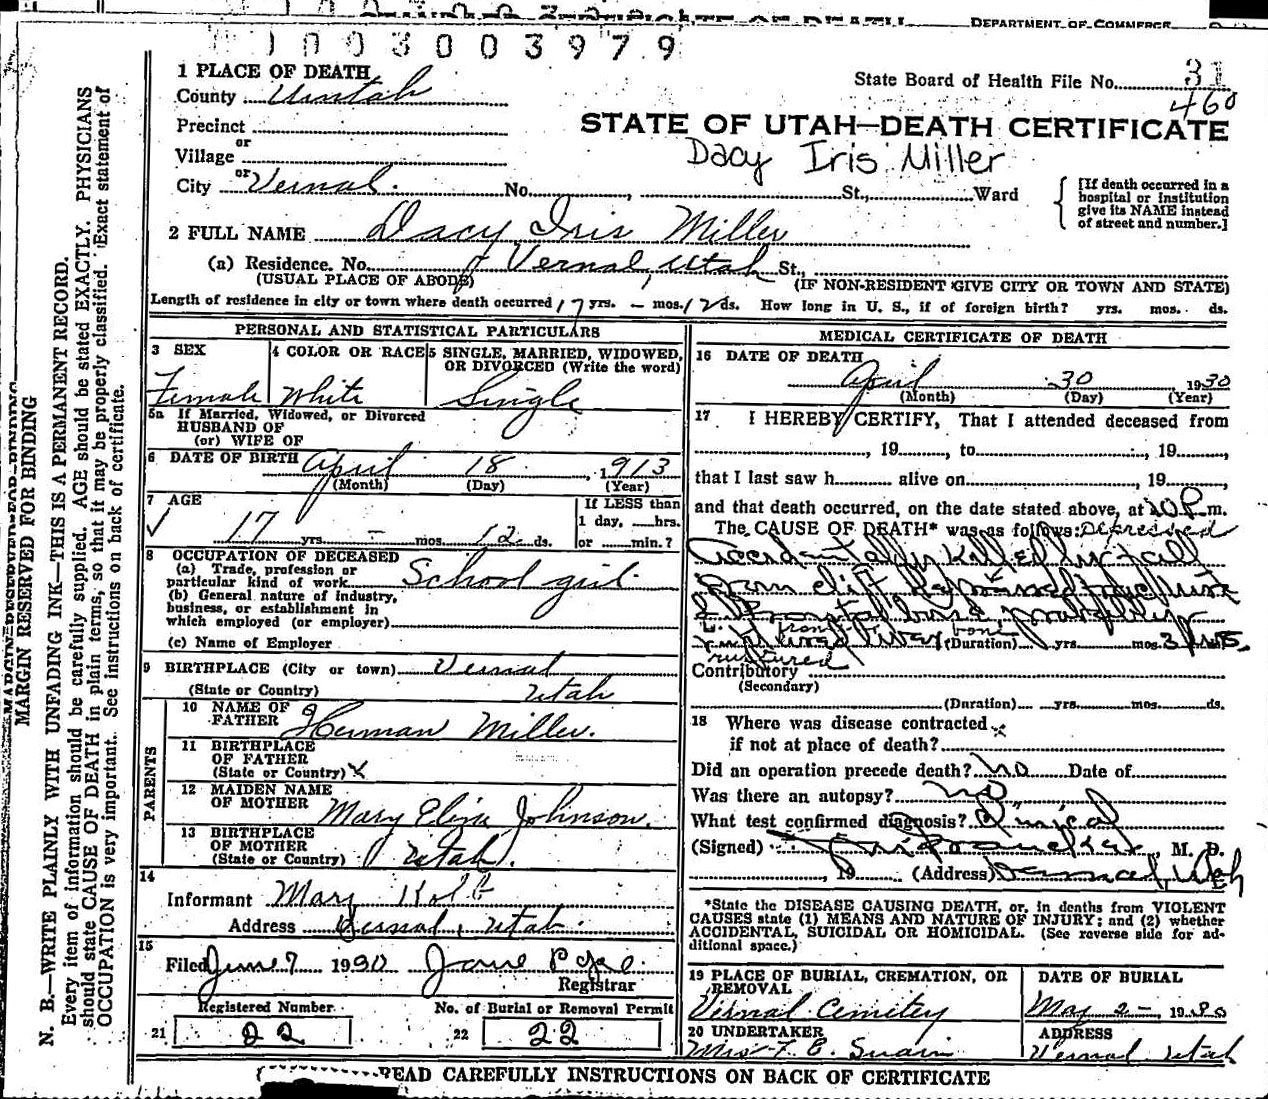 DEPARTMENT OF COMMERCE
1003003979
State Board of Health File No. 31
460
STATE OF UTAH—DEATH CERTIFICATE
Dacy Iris Miller
1 PLACE OF DEATH
County Uintah
Precinct
or
Village
or
City Vernal. No. , St., Ward
[If death occurred in a hospital or institution give its NAME instead of street and number.]
2 FULL NAME Dacy Iris Miller
(a) Residence. No. Vernal, Utah St.,
(USUAL PLACE OF ABODE) (IF NON-RESIDENT GIVE CITY OR TOWN AND STATE)
Length of residence in city or town where death occurred 17 yrs. - mos. 12 ds. How long in U. S., if of foreign birth? yrs. mos. ds.
PERSONAL AND STATISTICAL PARTICULARS
3 SEX
Female
4 COLOR OR RACE
White
5 SINGLE, MARRIED, WIDOWED, OR DIVORCED (Write the word)
Single
5a If Married, Widowed, or Divorced
HUSBAND OF
(or) WIFE OF
6 DATE OF BIRTH April 18, 1913
(Month) (Day) (Year)
7 AGE
17 yrs - mos. 12 ds.
If LESS than
1 day, hrs.
or min.?
8 OCCUPATION OF DECEASED
(a) Trade, profession or
particular kind of work School girl.
(b) General nature of industry,
business, or establishment in
which employed (or employer)
(c) Name of Employer
9 BIRTHPLACE (City or town) Vernal
(State or Country) Utah
PARENTS
10 NAME OF
FATHER Herman Miller.
11 BIRTHPLACE
OF FATHER
(State or Country) X
12 MAIDEN NAME
OF MOTHER Mary Eliza Johnson.
13 BIRTHPLACE
OF MOTHER
(State or Country) Utah.
14
Informant Mary
Address Vernal, Utah.
15
Filed June 7 1930
Registrar
Registered Number No. of Burial or Removal Permit
21 22
22 22
MEDICAL CERTIFICATE OF DEATH
16 DATE OF DEATH
April 30, 1930
(Month) (Day) (Year)
17 I HEREBY CERTIFY, That I attended deceased from
, 19 , to , 19 ,
that I last saw h alive on , 19
and that death occurred, on the date stated above, at P. m.
The CAUSE OF DEATH* was as follows: Depressed
Accidentally killed by fall
from cliff
probably
ruptured
(Duration) yrs. mos. 3
Contributory
(Secondary)
(Duration) yrs. mos. ds.
18 Where was disease contracted
if not at place of death?
Did an operation precede death? No Date of
Was there an autopsy? no
What test confirmed diagnosis? Clinical
(Signed) , M. D.
, 19 (Address) Vernal, Utah
*State the DISEASE CAUSING DEATH, or, in deaths from VIOLENT
CAUSES state (1) MEANS AND NATURE OF INJURY; and (2) whether
ACCIDENTAL, SUICIDAL OR HOMICIDAL. (See reverse side for additional space.)
19 PLACE OF BURIAL, CREMATION, OR REMOVAL
Vernal Cemetery
DATE OF BURIAL
May 2 - 1930
20 UNDERTAKER
Mrs F. E. Swain
ADDRESS
Vernal Utah
READ CAREFULLY INSTRUCTIONS ON BACK OF CERTIFICATE
MARGIN RESERVED FOR BINDING
N. B.—WRITE PLAINLY WITH UNFADING INK—THIS IS A PERMANENT RECORD.
Every item of information should be carefully supplied. AGE should be stated EXACTLY. PHYSICIANS
should state CAUSE OF DEATH in plain terms, so that it may be properly classified. Exact statement of
OCCUPATION is very important. See instructions on back of certificate.